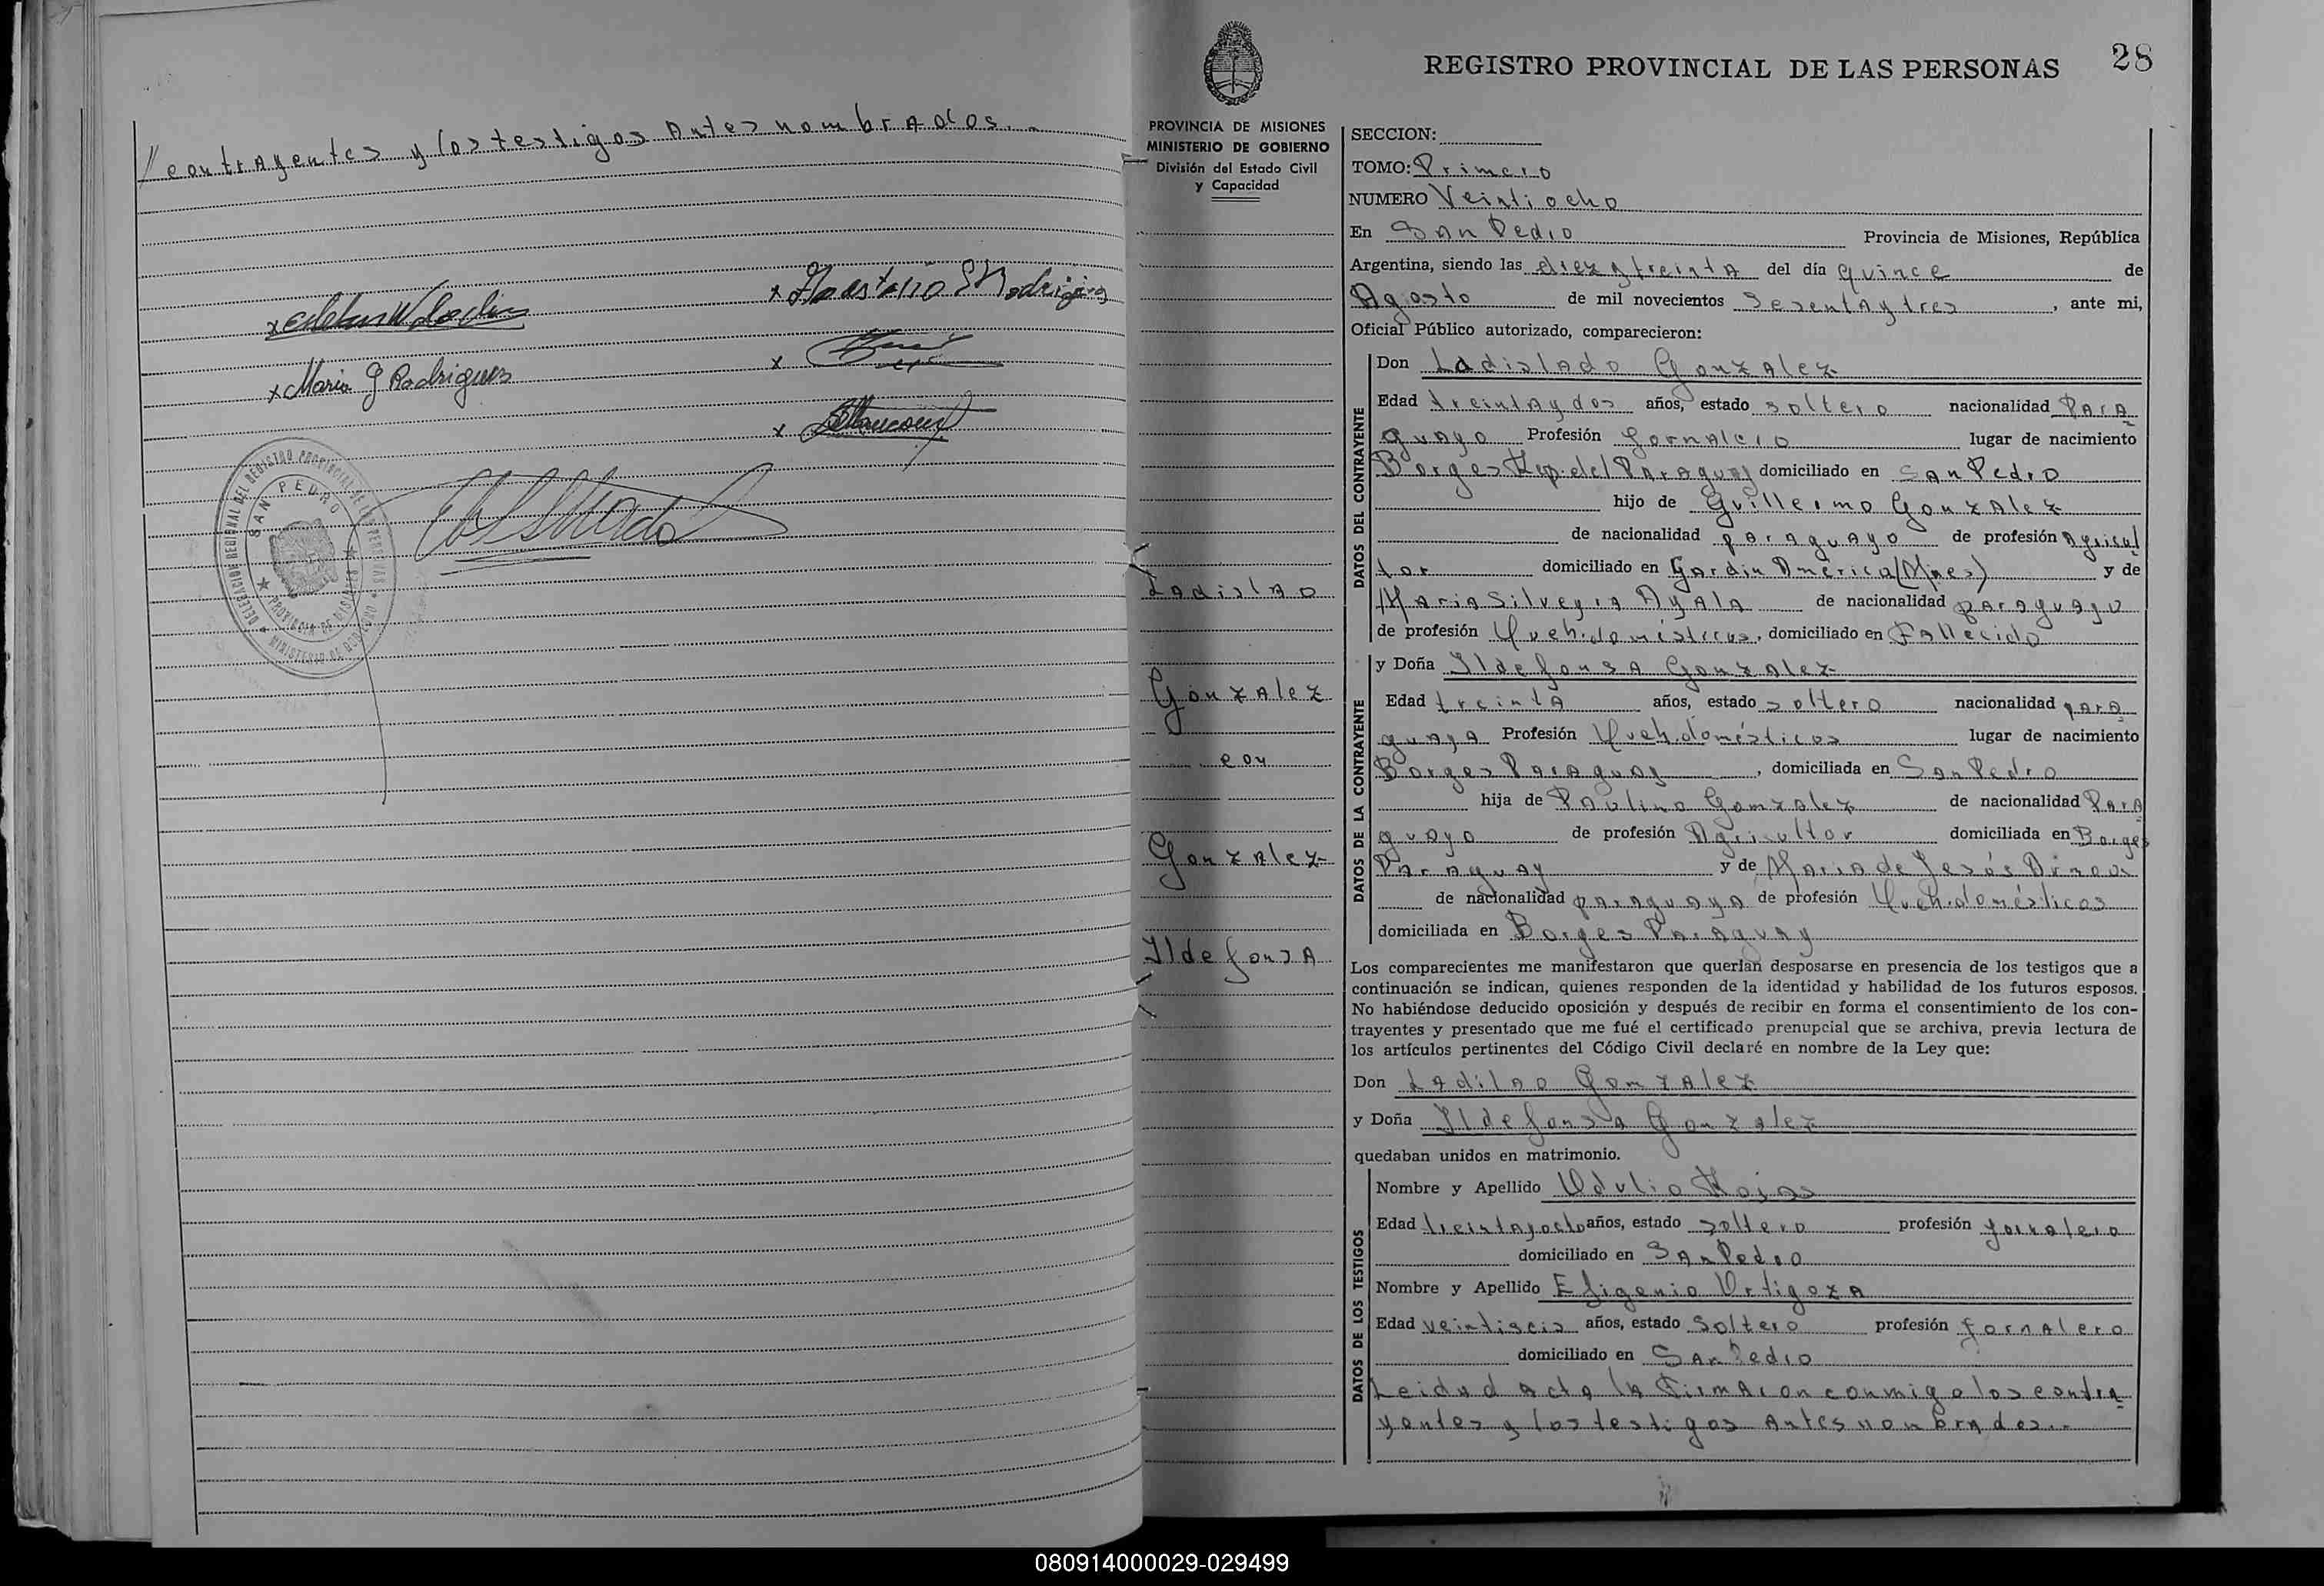 // contrayentes y los testigos Antes nombrados.-
x Maria G Rodrigues
DELEGACION REGIONAL DEL REGISTRO PROVINCIAL DE LAS PERSONAS
SAN PEDRO
PROVINCIA DE MISIONES
MINISTERIO DE GOBIERNO
REGISTRO PROVINCIAL DE LAS PERSONAS
28
PROVINCIA DE MISIONES
MINISTERIO DE GOBIERNO
División del Estado Civil
y Capacidad
Ladislao
Gonzalez
con
Gonzalez
Ildefonsa
SECCION:
TOMO: Primero
NUMERO Veintiocho
En San Pedro Provincia de Misiones, República
Argentina, siendo las diez y treinta del día quince de
Agosto de mil novecientos Sesenta y tres, ante mi,
Oficial Público autorizado, comparecieron:
DATOS DEL CONTRAYENTE
Don Ladislado Gonzalez
Edad treinta y dos años, estado soltero nacionalidad Para
guayo Profesión Jornalero lugar de nacimiento
Borges Rep. del Paraguay domiciliado en San Pedro
hijo de Guillermo Gonzalez
de nacionalidad paraguayo de profesión Agricul
tor domiciliado en Jardin America (Mnes) y de
Maria Silveyra Ayala de nacionalidad paraguayo
de profesión Queh. domésticos, domiciliado en Fallecido
DATOS DE LA CONTRAYENTE
y Doña Ildefonsa Gonzalez
Edad treinta años, estado soltero nacionalidad para
guaya Profesión Queh. domésticos lugar de nacimiento
Borges Paraguay, domiciliada en San Pedro
hija de Paulino Gonzalez de nacionalidad Para
guayo de profesión Agricultor domiciliada en Borges
Paraguay y de Maria de Jesús
de nacionalidad paraguaya de profesión Queh. domésticos
domiciliada en Borges Paraguay
Los comparecientes me manifestaron que querían desposarse en presencia de los testigos que a
continuación se indican, quienes responden de la identidad y habilidad de los futuros esposos.
No habiéndose deducido oposición y después de recibir en forma el consentimiento de los con-
trayentes y presentado que me fué el certificado prenupcial que se archiva, previa lectura de
los artículos pertinentes del Código Civil declaré en nombre de la Ley que:
Don Ladilao Gonzalez
y Doña Ildefonsa Gonzalez
quedaban unidos en matrimonio.
DATOS DE LOS TESTIGOS
Nombre y Apellido Odulio Rojas
Edad treinta y ocho años, estado soltero profesión jornalero
domiciliado en San Pedro
Nombre y Apellido Efigenio Ortigoza
Edad veintiseis años, estado Soltero profesión jornalero
domiciliado en San Pedro
Leida el acta la firmaron conmigo los contra
yentes y los testigos Antes nombrados.-
080914000029-029499